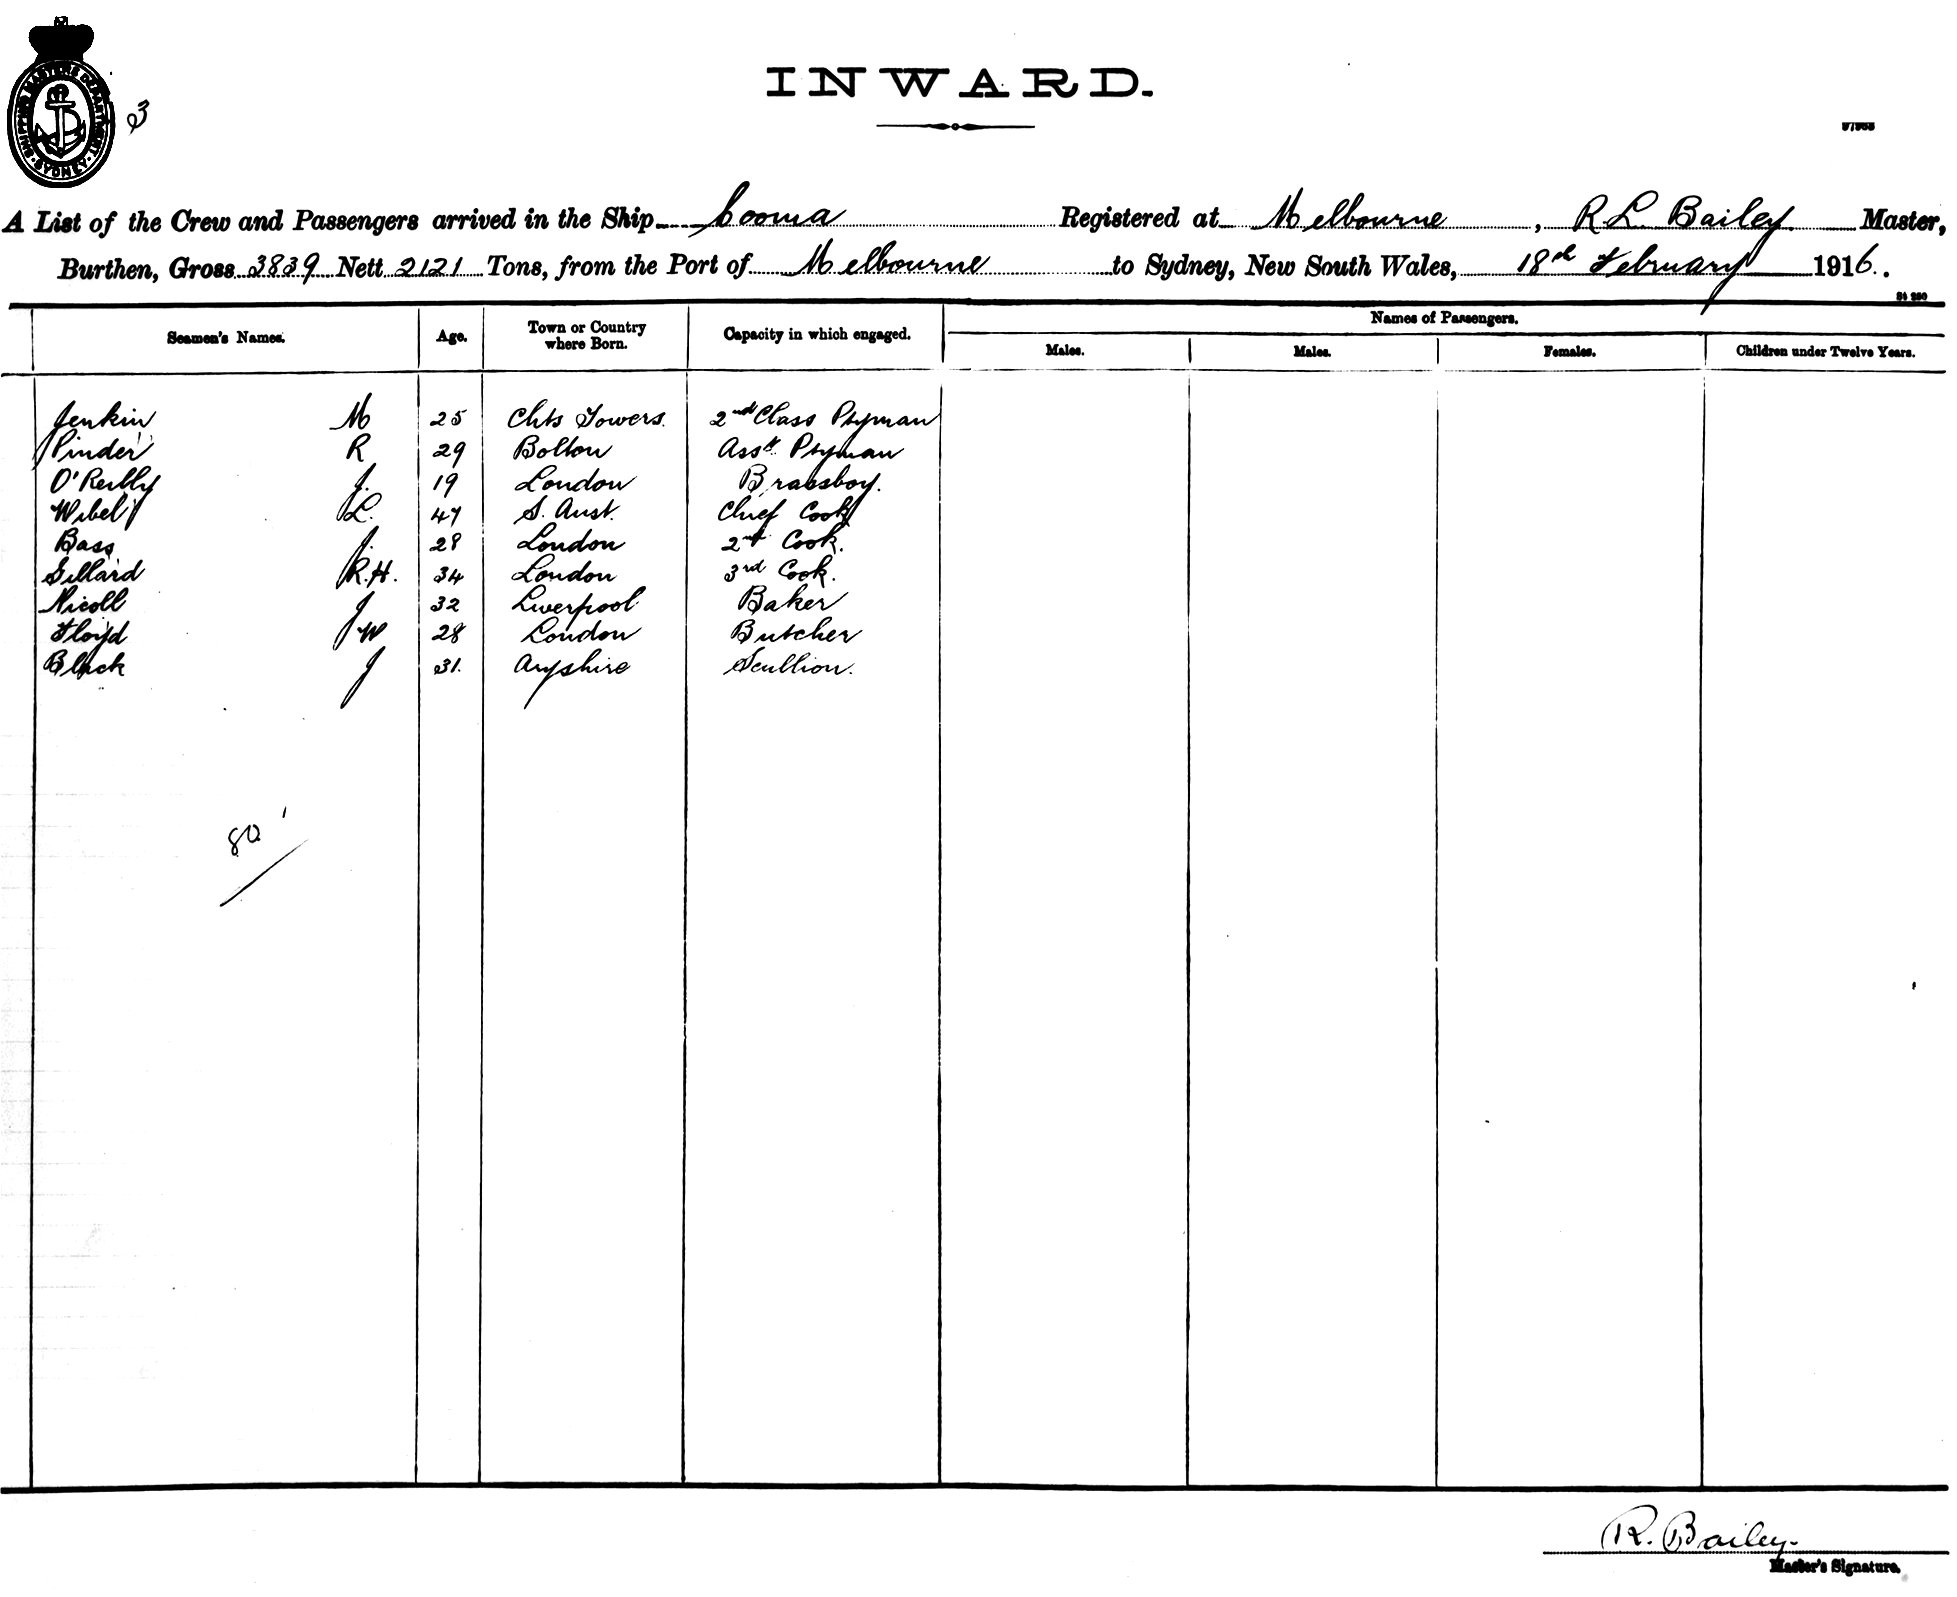 SHIPPING MASTERS DEPARTMENT · SYDNEY ·
3
INWARD.
A List of the Crew and Passengers arrived in the Ship Cooma Registered at Melbourne, R L Bailey Master,
Burthen, Gross 3839 Nett 2121 Tons, from the Port of Melbourne to Sydney, New South Wales, 18th February 1916.
Seamen's Names. Age. Town or Country where Born. Capacity in which engaged. Names of Passengers.
Males. Males. Females. Children under Twelve Years.
Jenkin M 25 Chts Towers. 2nd Class Ptyman
Pinder R 29 Bolton Asst. Ptyman
O'Reilly J. 19 London Brassboy.
Wibel L. 47 S. Aust. Chief Cook
Bass J. 28 London 2nd Cook.
Sillard R.H. 34 London 3rd Cook.
Nicoll J 32 Liverpool Baker
Floyd J W 28 London Butcher
Black J 31. Aryshire Scullion.
80
R. Bailey.
Master's Signature.